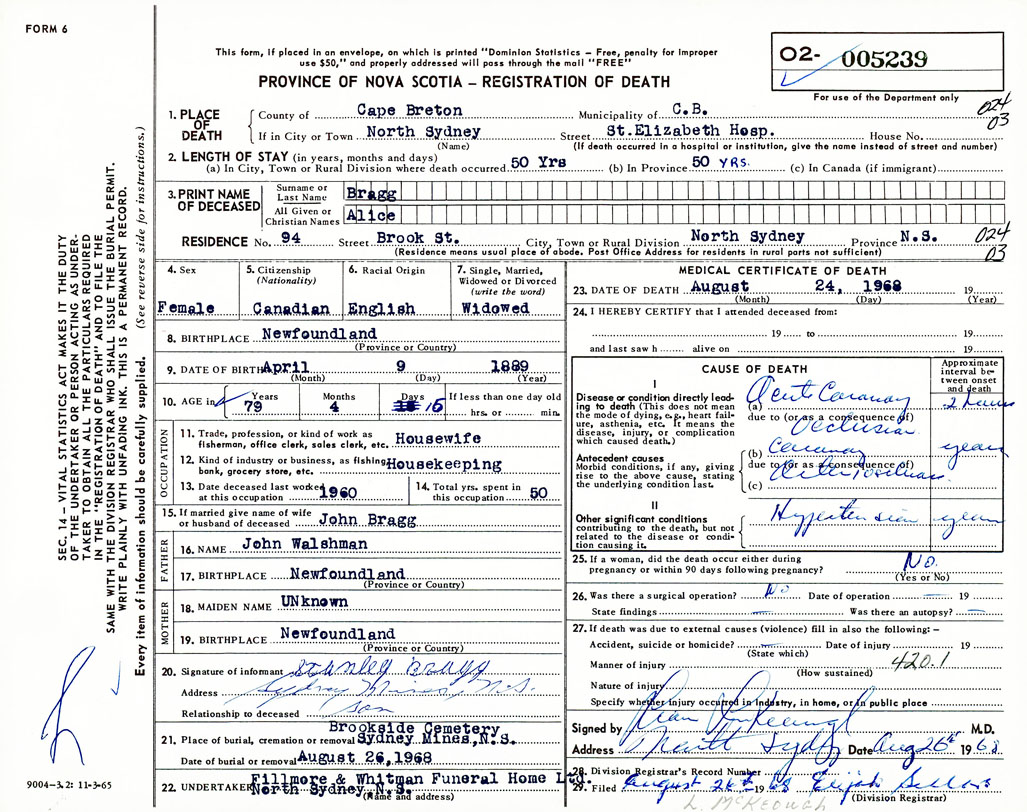 FORM 6
This form, if placed in an envelope, on which is printed "Dominion Statistics – Free, penalty for improper
use $50," and properly addressed will pass through the mail "FREE"
PROVINCE OF NOVA SCOTIA – REGISTRATION OF DEATH
O2- 005239
For use of the Department only
024
03
1. PLACE OF DEATH
County of Cape Breton Municipality of C.B.
If in City or Town North Sydney Street St.Elizabeth Hosp. House No.
(Name) (If death occurred in a hospital or institution, give the name instead of street and number)
2. LENGTH OF STAY (in years, months and days)
(a) In City, Town or Rural Division where death occurred 50 Yrs (b) In Province 50 YRS. (c) In Canada (if immigrant)
3. PRINT NAME OF DECEASED
Surname or Last Name Bragg
All Given or Christian Names Alice
RESIDENCE No. 94 Street Brook St. City, Town or Rural Division North Sydney Province N.S.
(Residence means usual place of abode. Post Office Address for residents in rural parts not sufficient)
024
03
4. Sex
Female
5. Citizenship
(Nationality)
Canadian
6. Racial Origin
English
7. Single, Married,
Widowed or Divorced
(write the word)
Widowed
8. BIRTHPLACE Newfoundland
(Province or Country)
9. DATE OF BIRTH April 9 1889
(Month) (Day) (Year)
10. AGE in Years Months Days If less than one day old
79 4 15 hrs. or min.
OCCUPATION
11. Trade, profession, or kind of work as
fisherman, office clerk, sales clerk, etc. Housewife
12. Kind of industry or business, as fishing,
bank, grocery store, etc. Housekeeping
13. Date deceased last worked
at this occupation 1960
14. Total yrs. spent in
this occupation 50
15. If married give name of wife
or husband of deceased John Bragg
FATHER
16. NAME John Walshman
17. BIRTHPLACE Newfoundland
(Province or Country)
MOTHER
18. MAIDEN NAME UNknown
19. BIRTHPLACE Newfoundland
(Province or Country)
20. Signature of informant Stanley Bragg
Address Sydney Mines, N.S.
Relationship to deceased son
21. Place of burial, cremation or removal Brookside Cemetery
Sydney Mines,N.S.
Date of burial or removal August 26,1968
22. UNDERTAKER Fillmore & Whitman Funeral Home Ltd.
North Sydney N.S.
(Name and address)
MEDICAL CERTIFICATE OF DEATH
23. DATE OF DEATH August 24, 1968 19
(Month) (Day) (Year)
24. I HEREBY CERTIFY that I attended deceased from:
19 to 19
and last saw h alive on 19
CAUSE OF DEATH
Approximate
interval be-
tween onset
and death
I
Disease or condition directly lead-
ing to death (This does not mean
the mode of dying, e.g., heart fail-
ure, asthenia, etc. It means the
disease, injury, or complication
which caused death.)
(a) Acute Coronary 2 hours
due to (or as a consequence of)
Occlusion
Antecedent causes
Morbid conditions, if any, giving
rise to the above cause, stating
the underlying condition last.
(b) Coronary years
due to (or as a consequence of)
(c)
II
Other significant conditions
contributing to the death, but not
related to the disease or condi-
tion causing it.
Hypertension years
25. If a woman, did the death occur either during
pregnancy or within 90 days following pregnancy? No.
(Yes or No)
26. Was there a surgical operation? No Date of operation 19
State findings Was there an autopsy?
27. If death was due to external causes (violence) fill in also the following: –
Accident, suicide or homicide? Date of injury 19
(State which)
Manner of injury 420.1
(How sustained)
Nature of injury
Specify whether injury occurred in industry, in home, or in public place
Signed by M.D.
Address North Sydney Date Aug 26th 1968
28. Division Registrar's Record Number
29. Filed August 26th 1968 Elijah Sellars
(Division Registrar)
L. McKeough
SEC. 14 – VITAL STATISTICS ACT MAKES IT THE DUTY
OF THE UNDERTAKER OR PERSON ACTING AS UNDER-
TAKER TO OBTAIN ALL THE PARTICULARS REQUIRED
IN THE "REGISTRATION OF DEATH" AND TO FILE THE
SAME WITH THE DIVISION REGISTRAR WHO SHALL ISSUE THE BURIAL PERMIT.
WRITE PLAINLY WITH UNFADING INK. THIS IS A PERMANENT RECORD.
Every item of information should be carefully supplied. (See reverse side for instructions.)
9004-3.2: 11-3-65